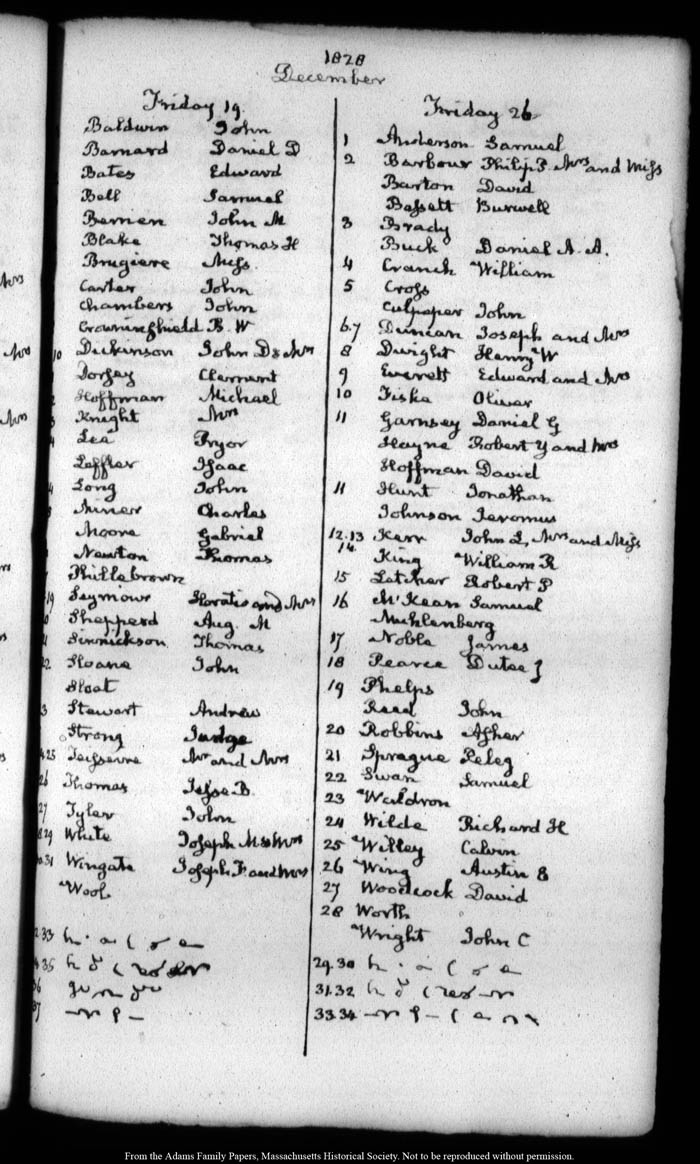 1828
December
Friday 19.
Baldwin John
Barnard Daniel D
Bates Edward
Bell Samuel
Berrien John M
Blake Thomas H
Brugiere Miss.
Carter John
Chambers John
Crowninshield B. W
10 Dickinson John D & Mrs
Dorsey Clement
Hoffman Michael
Knight Mrs
Lea Pryor
Leffler Isaac
Long John
Miner Charles
Moore Gabriel
Newton Thomas
Phillebrown
19 Seymour Horatio and Mrs
Shepperd Aug. H
Sinnickson Thomas
22 Sloane John
Sloat
3 Stewart Andrew
Strong Judge
25 Teisseire Mr and Mrs
26 Thomas Jesse B.
27 Tyler John
29 White Joseph M & Mrs
31 Wingate Joseph F. and Mrs
Wool
33
35
36
37
Friday 26
1 Anderson Samuel
2 Barbour Philip P. Mrs and Miss
Barton David
Bassett Burwell
3 Brady
Buck Daniel A. A.
4 Cranch William
5 Cross
Culpeper John
6.7 Duncan Joseph and Mrs
8 Dwight Henry W
9 Everett Edward and Mrs
10 Fiske Oliver
11 Garnsey Daniel G
Hayne Robert Y and Mrs
Hoffman David
11 Hunt Jonathan
Johnson Jeromus
12.13 Kerr John L, Mrs and Miss
14. King William R
15 Letcher Robert P
16 McKean Samuel
Muhlenberg
17 Noble James
18 Pearce Dutee J
19 Phelps
Reed John
20 Robbins Asher
21 Sprague Peleg
22 Swan Samuel
23 Waldron
24 Wilde Richard H
25 Willey Calvin
26 Wing Austin E
27 Woodcock David
28 Worth
Wright John C
29.30
31.32
33.34
From the Adams Family Papers, Massachusetts Historical Society. Not to be reproduced without permission.